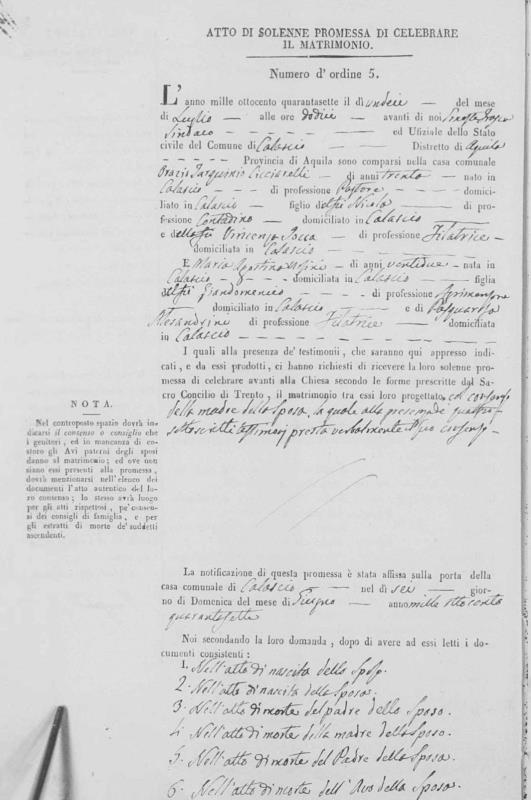 ATTO DI SOLENNE PROMESSA DI CELEBRARE
IL MATRIMONIO.
Numero d'ordine 5.
L'anno mille ottocento quarantasette il dì undeci — del mese
di Luglio — alle ore dodici — avanti di noi
Sindaco — ed Ufiziale dello Stato
civile del Comune di Calascio — Distretto di Aquila
Provincia di Aquila sono comparsi nella casa comunale
Orazio Tarquinio Ciccarelli — di anni trenta — nato in
Calascio — di professione Pastore — domici-
liato in Calascio — figlio del fu Nicola — di pro-
fessione Contadino — domiciliato in Calascio
e della fu Vincenza — di professione Filatrice —
domiciliata in Calascio
E Maria Agostina — di anni ventidue — nata in
Calascio — domiciliata in Calascio — figlia
del fu Giandomenico — di professione
— domiciliato in Calascio — e di Pasquarosa
di professione Filatrice — domiciliata
in Calascio
I quali alla presenza de' testimonii, che saranno qui appresso indi-
cati, e da essi prodotti, ci hanno richiesti di ricevere la loro solenne pro-
messa di celebrare avanti alla Chiesa secondo le forme prescritte dal Sa-
cro Concilio di Trento, il matrimonio tra essi loro progettato, col consenso
della madre della Sposa, la quale alla presenza de quattro
sottoscritti testimonj presta verbalmente il suo consenso —
NOTA.
Nel controposto spazio dovrà in-
dicarsi il consenso o consiglio che
i genitori, ed in mancanza di co-
storo gli Avi paterni degli sposi
danno al matrimonio; ed ove non
siano essi presenti alla promessa,
dovrà mentovarsi nell'elenco dei
documenti l'atto autentico del lo-
ro consenso; lo stesso avrà luogo
per gli atti rispettosi, pe' consen-
si dei consigli di famiglia, e per
gli estratti di morte de' suddetti
ascendenti.
La notificazione di questa promessa è stata affissa sulla porta della
casa comunale di Calascio — nel dì sei — gior-
no di Domenica del mese di Giugno — anno mille ottocento
quarantasette
Noi secondando la loro domanda, dopo di avere ad essi letti i do-
cumenti consistenti :
1. Nell'atto di nascita dello Sposo.
2. Nell'atto di nascita della Sposa.
3. Nell'atto di morte del padre dello Sposo.
4. Nell'atto di morte della madre dello Sposo.
5. Nell'atto di morte del Padre della Sposa.
6. Nell'atto di morte dell'Avo della Sposa.